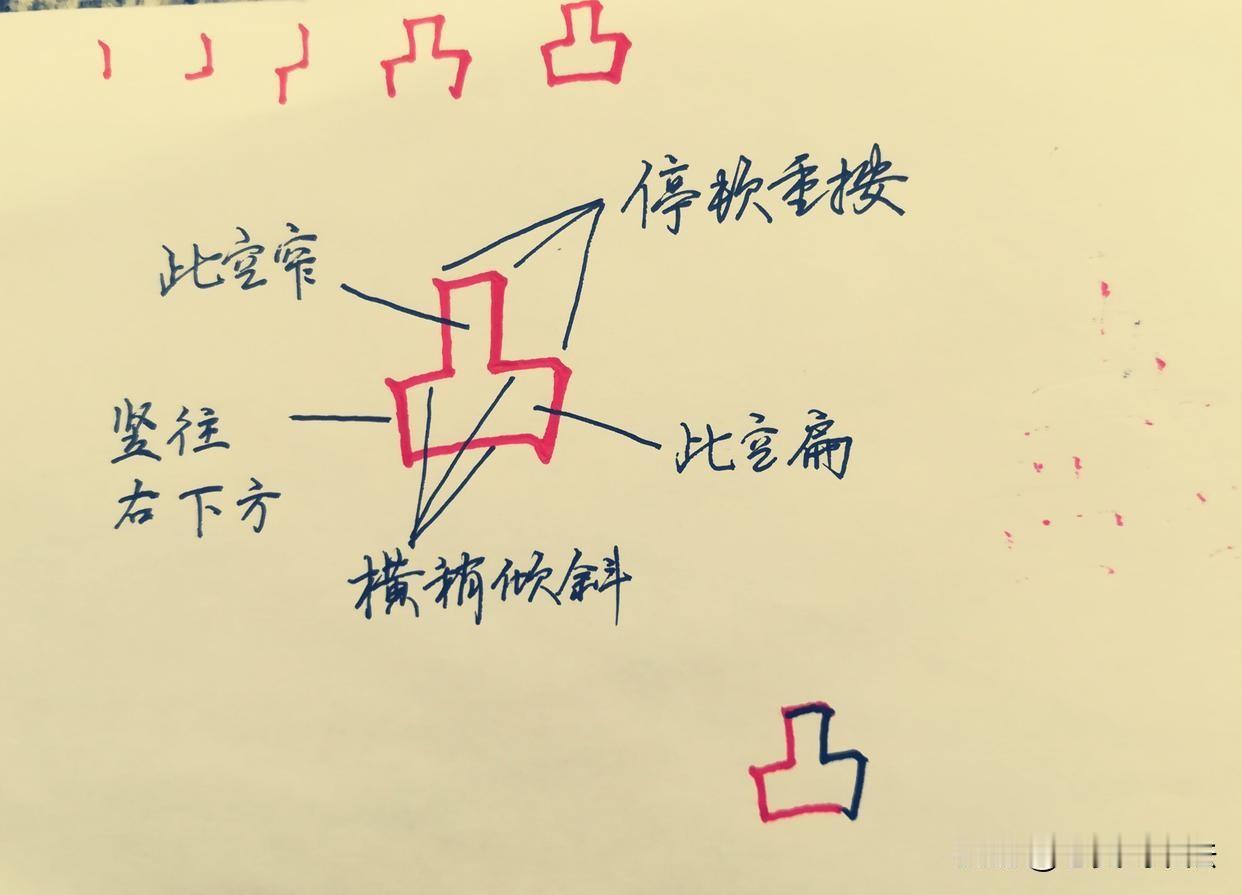 凸
停顿重按
此空窄
凸
竖往
右下方
此空扁
横稍倾斜
凸